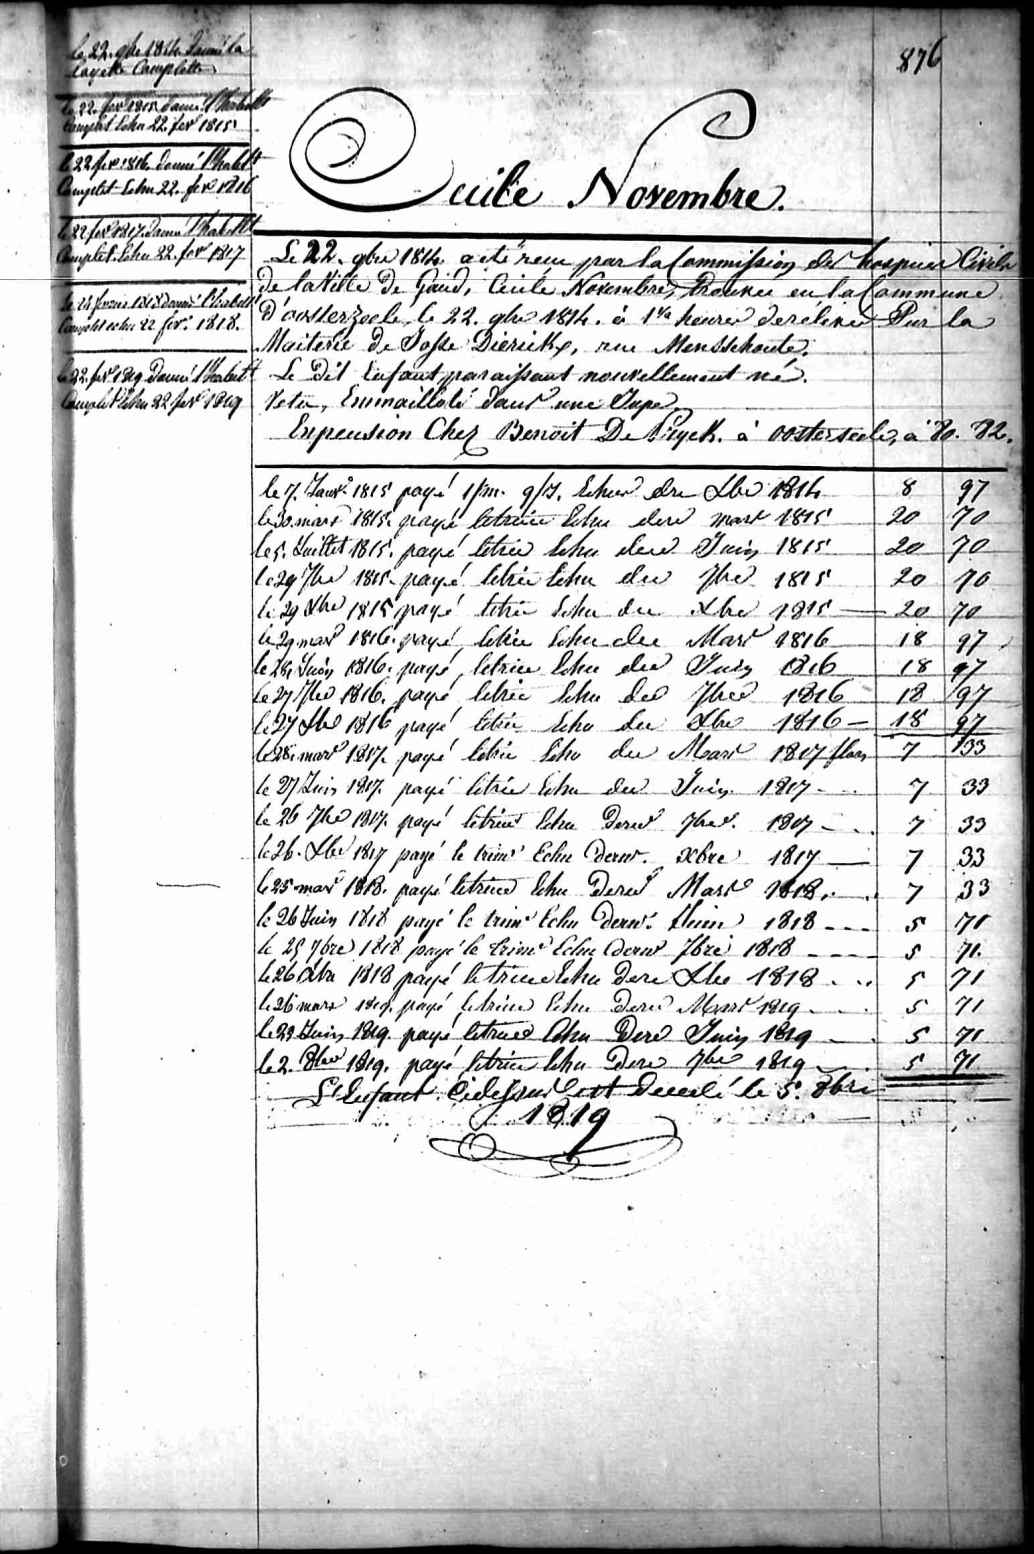 876
le 22. 9bre 1814 Donné la
layette Complette
le 22. fevr 1815 donné l'habillt
Complet Echu 22 fevr 1815
le 22 fevr 1816. donné l'habillt
Complet Echu 22. fevr 1816
le 22 fevr 1817. donné l'habillt
Complet. Echu 22. fevr 1817
le 24 fevrier 1818 donné l'habillt
Complet echu 22 fevr. 1818.
le 22. fevr 1819 Donné l'habillt
Complet Echu 22 fevr 1819
Cecile Novembre.
Le 22. 9bre 1814 a été reçu par la Commission des hospices Civils
de la Ville de Gand, Cecile Novembre, Trouvée en la Commune
D'oosterzeele, le 22. 9bre 1814. à 1re heure Sur la
de Josse Dierickx, rue
Le Dit Enfant paraissant nouvellement né.
Vetu, Emmailloté dans une Jupe
En pension Chez Benoit De Pryck. à oosterzeele, à 82.
le 7. Janvr 1815 payé 1/m. 9/J. Echus dre Xbre 1814 8 97
le 30. mars 1815. payé letrim Echu dere mars 1815 20 70
le 5. Juillet 1815. payé letrim Echu dere Juin 1815 20 70
le 29 7bre 1815. payé letrim Echu dre 7bre 1815 20 70
le 29 Xbre 1815 payé letrim Echu dre Xbre 1815 20 70
le 29 mars 1816. payé, letrim Echu dre Mars 1816 18 97
le 28, Juin 1816. payé, letrim Echu dre Juin 1816 18 97
le 27 7bre 1816. payé letrim Echu dre 7bre 1816 18 97
le 27 Xbre 1816 payé letrim Echu dre Xbre 1816 18 97
le 28. mars 1817. payé letrim Echu dre Mars 1817 flors 7 33
le 27 Juin 1817. payé letrim Echu dre Juin 1817 7 33
le 26 7bre 1817. payé letrim Echu Dernr 7bre. 1817 7 33
le 26. Xbre 1817 payé le trimr Echu Dernr. xbre 1817 7 33
le 25 mars 1818. payé letrim Echu Dernr Mars 1818. 7 33
le 26 Juin 1818 payé le trimr Echu Dernr. Juin 1818 5 71
le 25 7bre 1818 payé le trimr Echu Dernr 7bre 1818 5 71.
le 26 Xbre 1818 payé letrim Echu Dere Xbre 1818 5 71
le 26 mars 1819. payé letrim Echu Dere Mars 1819 5 71
le 23 Juin 1819. payé letrim Echu Dere Juin 1819 5 71
le 2. 8bre 1819. payé, letrim Echu Dere 7bre 1819 5 71
L'Enfant Cidessus est Decedé le 5. 8bre
1819